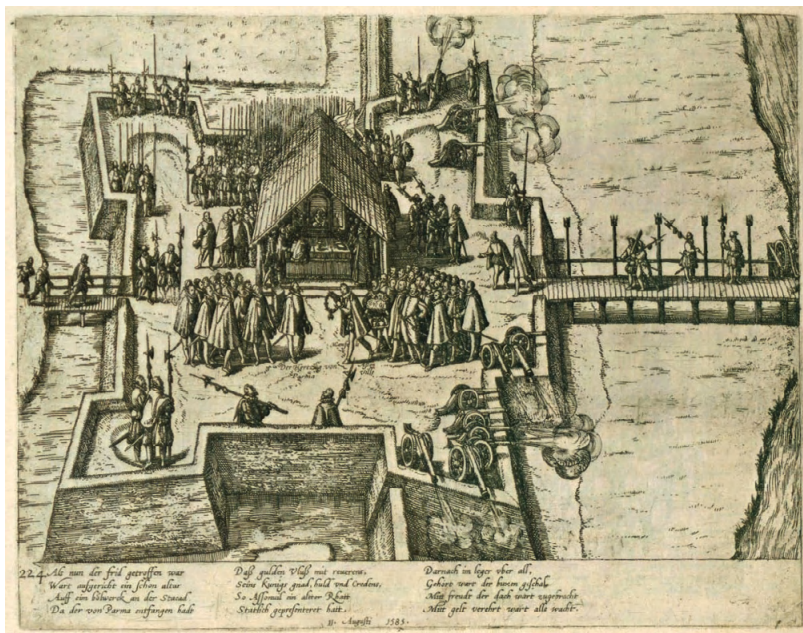 Der Hertzog von
Parma
224.
Als nun der frid getroffen war
Wart aufgericht ein schon altar
Auff ein bolwerck an der Stacad
Da der von Parma entfangen hadt
Daß gulden Vluß mit reuerens,
Seins Kunigs gnad, huld vnd Credens,
So Assonuil ein alter Rhatt
Statlich gepresenteret hatt.
Darnach im leger vber all,
Gehort wart der buxen geschal,
Mitt freudt der dach wart zugebracht
Mitt gelt verehrt wart alle wacht.
11. Augusti 1585.